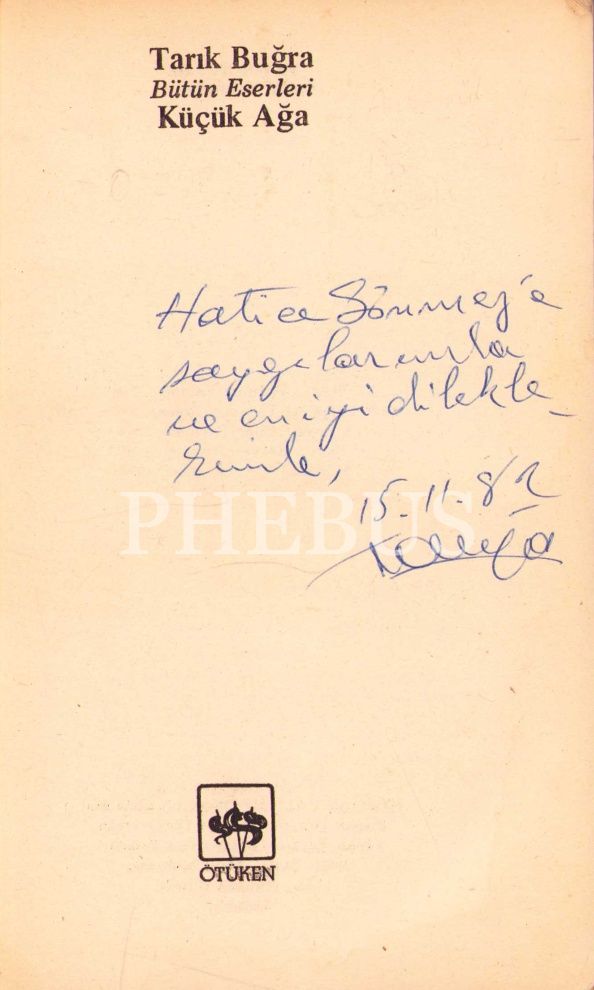 Tarık Buğra
Bütün Eserleri
Küçük Ağa
Hatice Sönmez'e
saygılarımla
ve en iyi dilekle_
rimle,
15.11.82
PHEBUS
ÖTÜKEN